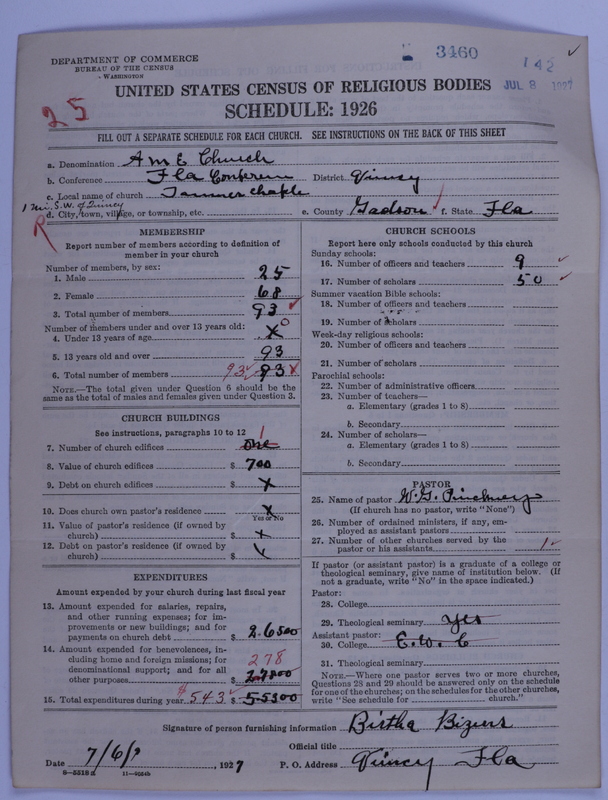 3460
142
DEPARTMENT OF COMMERCE
BUREAU OF THE CENSUS
WASHINGTON
JUL 8 1927
UNITED STATES CENSUS OF RELIGIOUS BODIES
25
SCHEDULE: 1926
FILL OUT A SEPARATE SCHEDULE FOR EACH CHURCH. SEE INSTRUCTIONS ON THE BACK OF THIS SHEET
a. Denomination A M E Church
b. Conference Fla Conferen District Quincy
c. Local name of church Tanner Chaple
1 Mi. S.W. of Quincy
d. City, town, village, or township, etc. e. County Gadson f. State Fla
R
MEMBERSHIP
Report number of members according to definition of
member in your church
Number of members, by sex:
1. Male 25
2. Female 68
3. Total number of members 93
Number of members under and over 13 years old:
4. Under 13 years of age X 0
5. 13 years old and over 93
6. Total number of members 93 93
NOTE.—The total given under Question 6 should be
same as the total of males and females given under Question 3.
CHURCH BUILDINGS
See instructions, paragraphs 10 to 12
7. Number of church edifices one 1
8. Value of church edifices $ 700
9. Debt on church edifices $ X
10. Does church own pastor's residence X
Yes or No
11. Value of pastor's residence (if owned by
church) $ X
12. Debt on pastor's residence (if owned by
church) $ X
EXPENDITURES
Amount expended by your church during last fiscal year
13. Amount expended for salaries, repairs,
and other running expenses; for im-
provements or new buildings; and for
payments on church debt $ 26500
14. Amount expended for benevolences, in-
cluding home and foreign missions; for
denominational support; and for all
other purposes $ 278
15. Total expenditures during year $543 $ 55300
CHURCH SCHOOLS
Report here only schools conducted by this church
Sunday schools:
16. Number of officers and teachers 9
17. Number of scholars 50
Summer vacation Bible schools:
18. Number of officers and teachers
19. Number of scholars
Week-day religious schools:
20. Number of officers and teachers
21. Number of scholars
Parochial schools:
22. Number of administrative officers
23. Number of teachers—
a. Elementary (grades 1 to 8)
b. Secondary
24. Number of scholars—
a. Elementary (grades 1 to 8)
b. Secondary
PASTOR
25. Name of pastor W. G. Pinckney
(If church has no pastor, write "None")
26. Number of ordained ministers, if any, em-
ployed as assistant pastors
27. Number of other churches served by the
pastor or his assistants 1
If pastor (or assistant pastor) is a graduate of a college or
theological seminary, give name of institution below. (If
not a graduate, write "No" in the space indicated.)
Pastor:
28. College
29. Theological seminary Yes
Assistant pastor:
30. College E. W. C
31. Theological seminary
NOTE.—Where one pastor serves two or more churches,
Questions 28 and 29 should be answered only on the schedule
for one of the churches; on the schedules for the other churches,
write "See schedule for church."
Signature of person furnishing information Birtha
Official title
Date 7/6/ , 1927 P. O. Address Quincy Fla